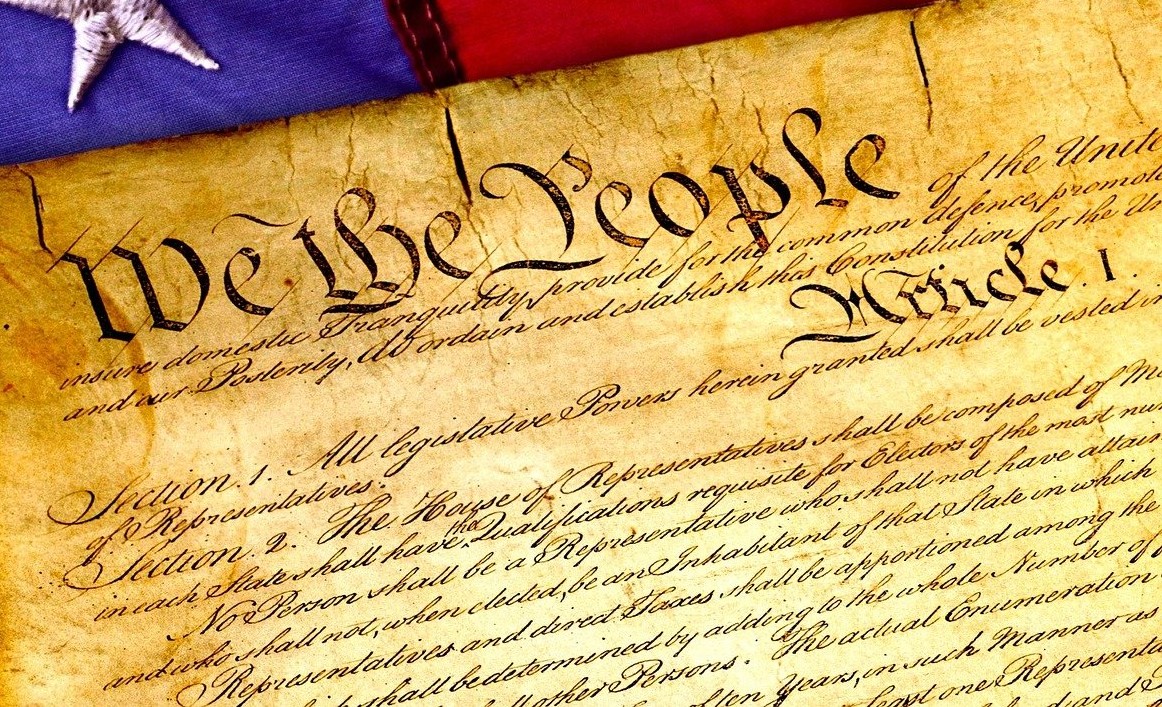 We the People of the Unite
insure domestic Tranquility, provide for the common defence, promote
and our Posterity, do ordain and establish this Constitution for the Un
Article. I.
Section. 1. All legislative Powers herein granted shall be vested in
of Representatives.
Section. 2. The House of Representatives shall be composed of Me
in each State shall have the Qualifications requisite for Electors of the most nu
No Person shall be a Representative who shall not have attain
and who shall not, when elected, be an Inhabitant of that State in which
Representatives and direct Taxes shall be apportioned among the
shall be determined by adding to the whole Number of
all other Persons. The actual Enumeration
of ten Years, in such Manner as
least one Representa